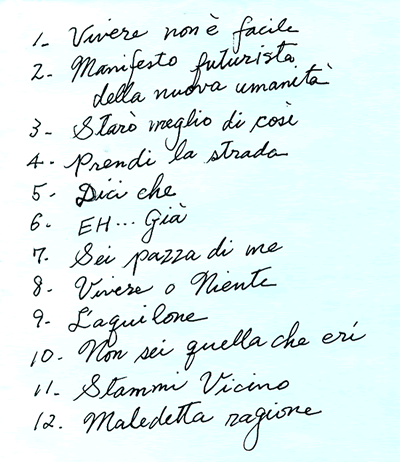 1- Vivere non è facile
2- Manifesto futurista
della nuova umanità
3- Starò meglio di così
4- Prendi la strada
5- Dici che
6- EH... Già
7- Sei pazza di me
8- Vivere o Niente
9- L'aquilone
10- Non sei quella che eri
11- Stammi Vicino
12- Maledetta ragione